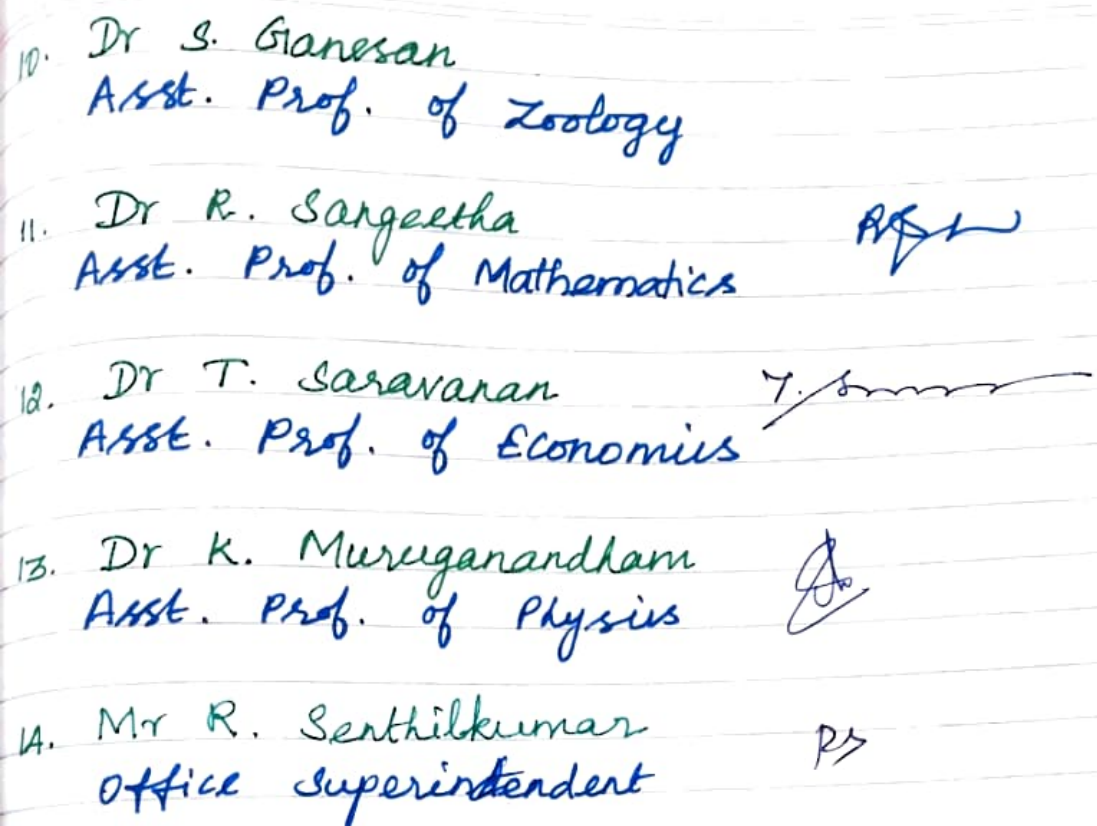 10. Dr S. Ganesan
Asst. Prof. of Zoology
11. Dr R. Sangeetha
Asst. Prof. of Mathematics
12. Dr T. Saravanan
Asst. Prof. of Economics
13. Dr K. Muruganandham
Asst. Prof. of Physics
14. Mr R. Senthilkumar RS
Office Superintendent